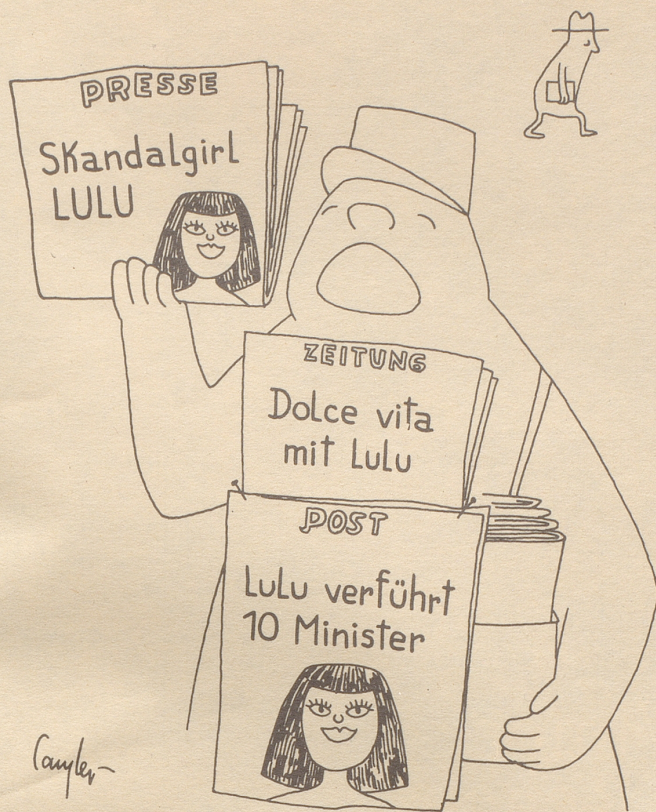 PRESSE
Skandalgirl
LULU
ZEITUNG
Dolce vita
mit Lulu
POST
LuLu verführt
10 Minister